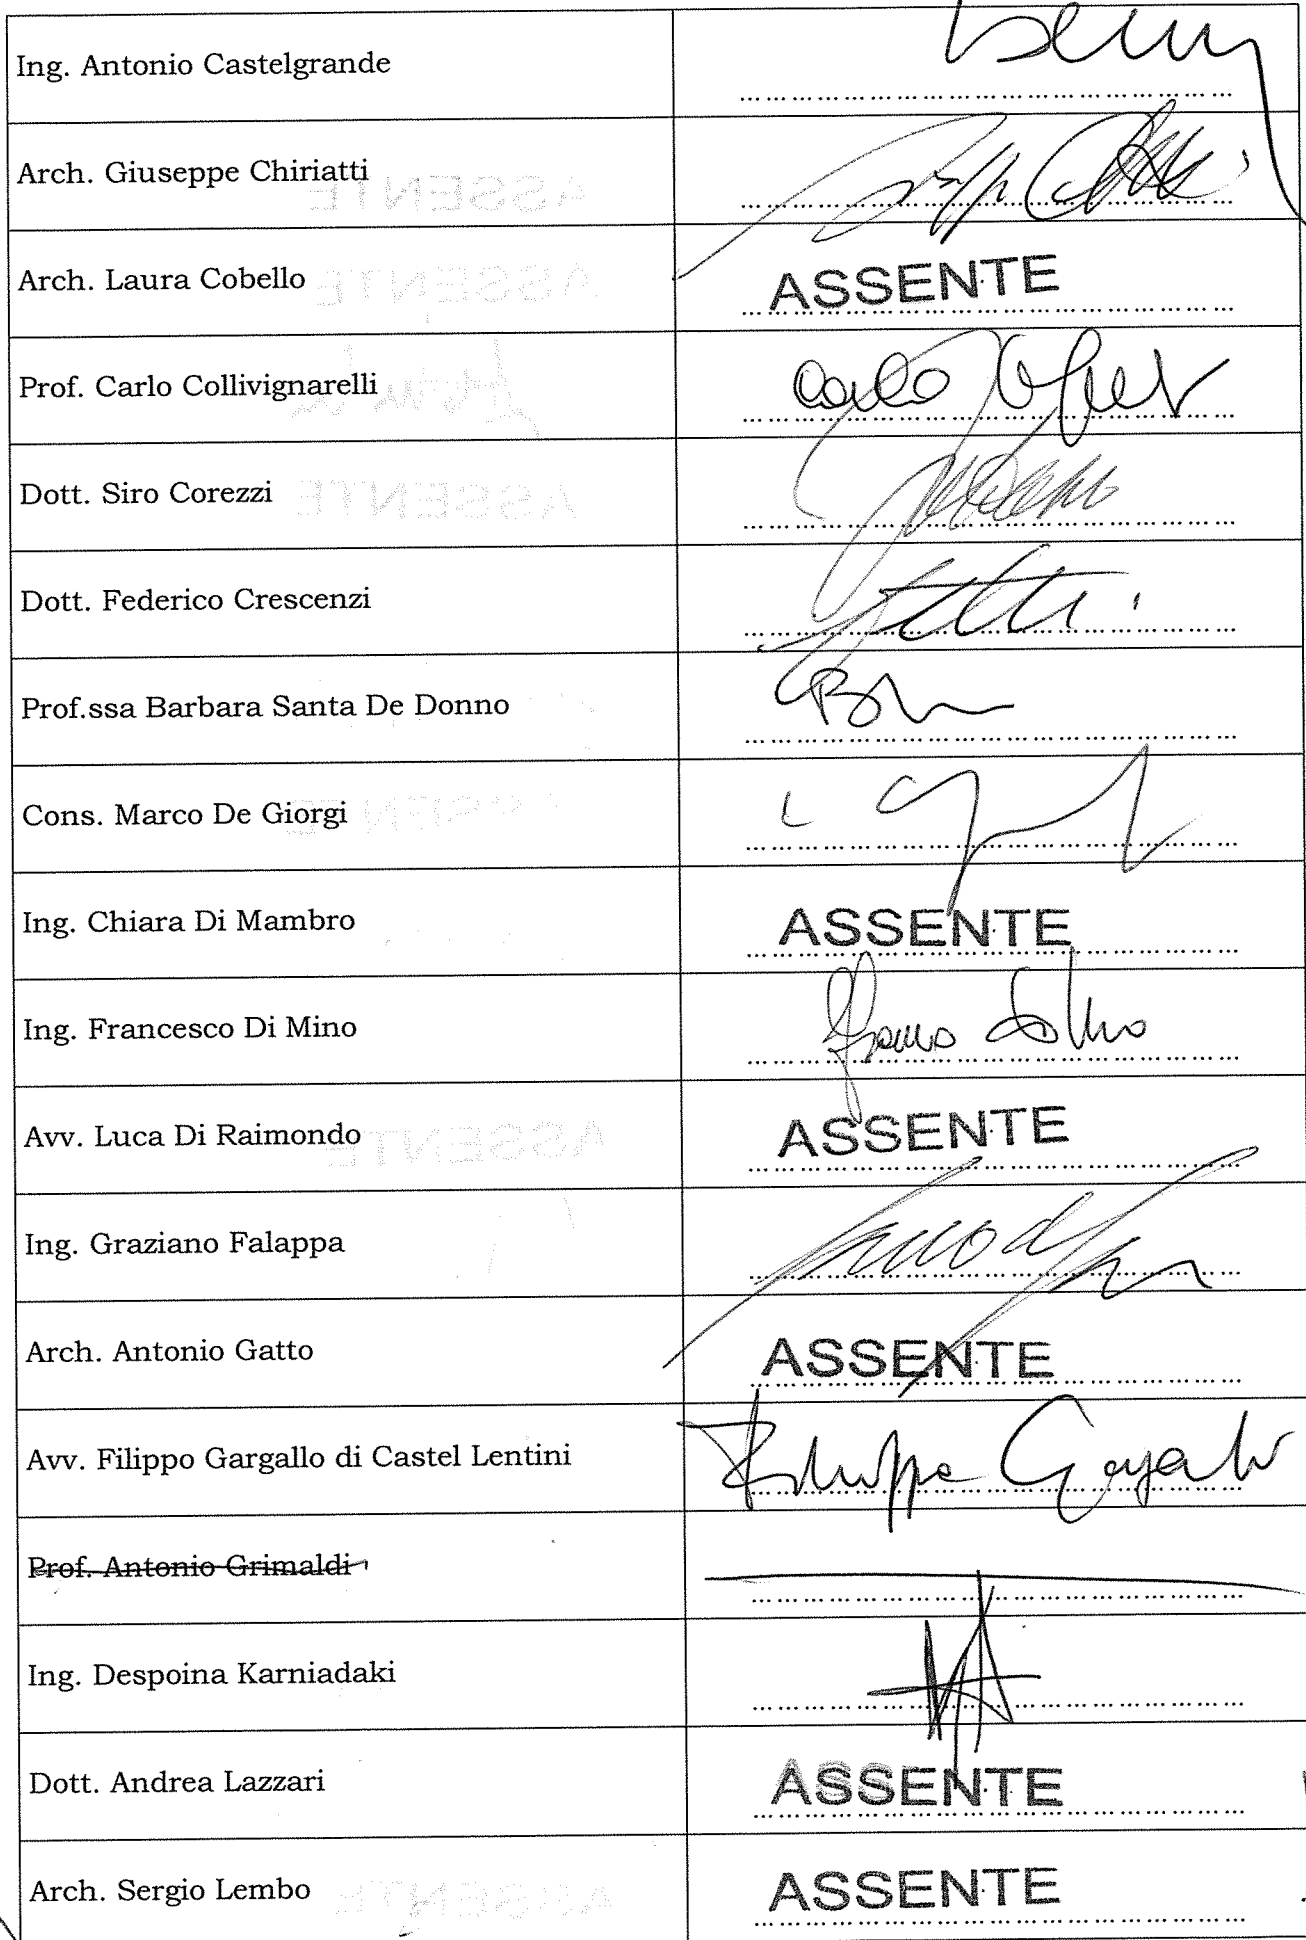 Ing. Antonio Castelgrande
Arch. Giuseppe Chiriatti
Arch. Laura Cobello ASSENTE
Prof. Carlo Collivignarelli Carlo
Dott. Siro Corezzi
Dott. Federico Crescenzi
Prof.ssa Barbara Santa De Donno
Cons. Marco De Giorgi
Ing. Chiara Di Mambro ASSENTE
Ing. Francesco Di Mino
Avv. Luca Di Raimondo ASSENTE
Ing. Graziano Falappa
Arch. Antonio Gatto ASSENTE
Avv. Filippo Gargallo di Castel Lentini Filippo Gargallo
Prof. Antonio Grimaldi
Ing. Despoina Karniadaki
Dott. Andrea Lazzari ASSENTE
Arch. Sergio Lembo ASSENTE